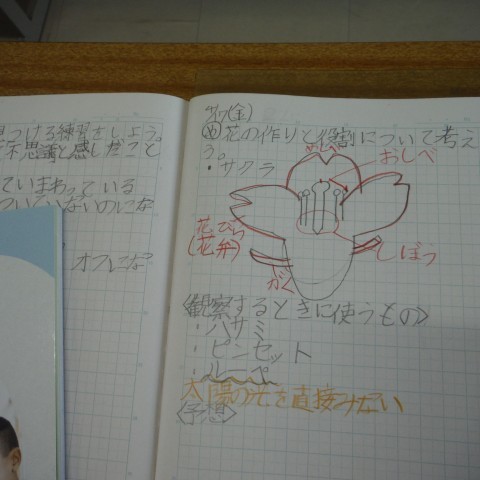 つける練習をしよう。
不思議と感じたこと
ていまわっている
ついていないのにな
オフにな?
5/7(金)
め 花の作りと役割について考え
う。
・サクラ
おしべ
花びら
(花弁)
しぼう
がく
<観察するときに使うもの>
・ハサミ
・ピンセット
・ルーペ
太陽の光を直接みない
<予想>